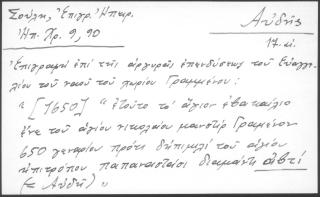 Σούλη, Ἐπιγρ. Ἠπειρ.
Ἠπ. Χρ. 9, 90
Αὐδῆς
17 αἰ.
Ἐπιγραφὴ ἐπὶ τῆς ἀργυρᾶς ἐπενδύσεως τοῦ Εὐαγγε-
λίου τοῦ ναοῦ τοῦ χωρίου Γραμμένου:
"[1650] " ἐτοῦτο τὸ ἅγιον ἐβακαίλιο
ἔνε τοῦ ἁγίου νικολαίου μανστίρ Γραμένου
650 γεναρίου πρότι δηπιμλί τοῦ αἰγίου
κιπιτρόπου παπαναστάσι διαμάντι αὐτί
(= Αὐδῆ) "